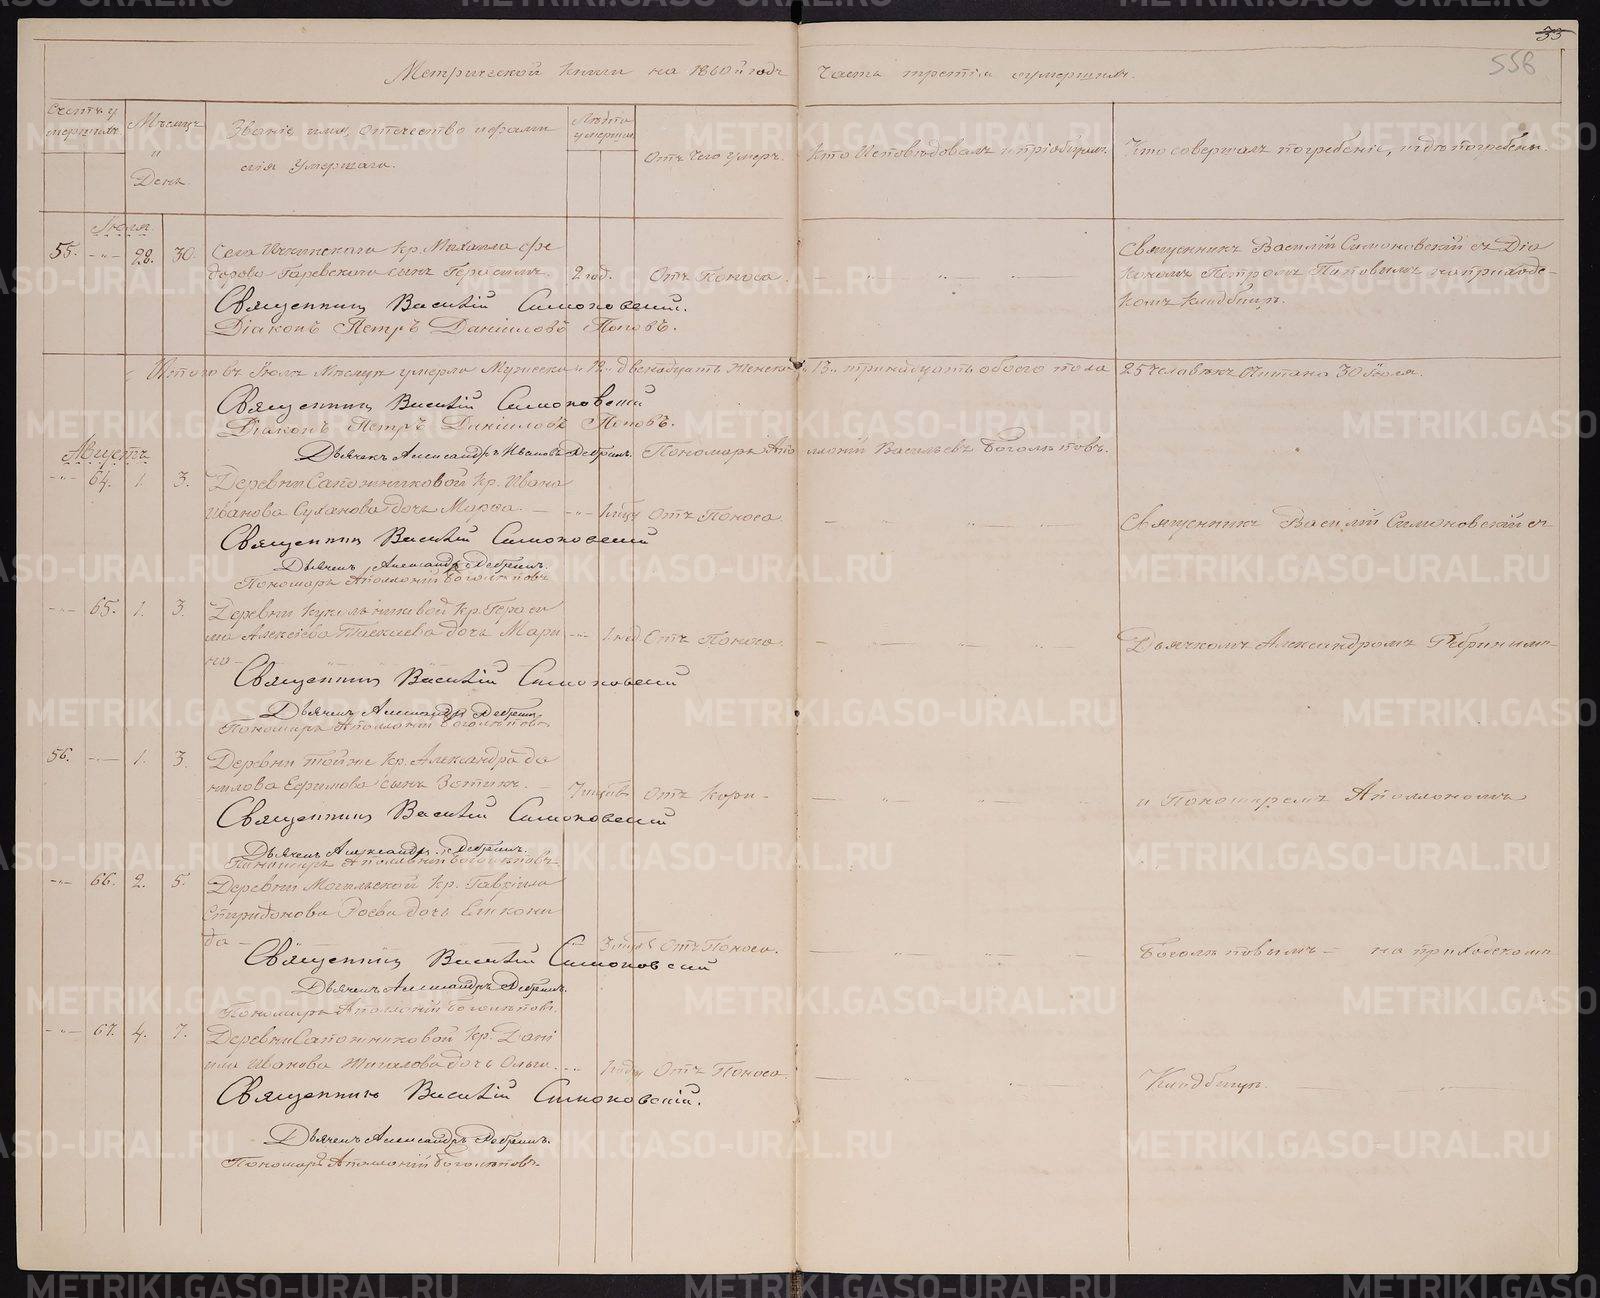 33
558
Метрической книги на 1860й годъ Часть третія о умершихъ.
Счетъ умершихъ.
Мѣсяцъ и День.
Званіе, имя, отечество и фамилія умершаго.
Лѣта умершихъ
Отъ чего умеръ.
Кто исповѣдовалъ и пріобщалъ.
Кто совершалъ погребеніе, и гдѣ погребены.
Іюля.
55. -"- 28. 30. Села кр. Михаила Ѳе
дорова Гаревскаго сынъ Герасимъ. 2 год. Отъ Поноса.
Священникъ Василій Симоновскій съ Діа
кономъ Петромъ Поповымъ на приходс-
комъ кладбищѣ.
Священникъ Василій Симоновскій.
Діаконъ Петръ Даніиловъ Поповъ.
Итого въ Іюлѣ Мѣсяцѣ умерло Мужеска 12. двенадцать Женска 13. тринадцать обоего пола 25 человѣкъ Читано 30 Іюля.
Священникъ Василій Симоновскій
Діаконъ Петръ Даніиловъ Поповъ.
Дьячекъ Александръ Ивановъ Ребринъ. Пономарь Аполлоній Васильевъ Боголѣповъ.
Августъ
-"- 64. 1. 3. Деревни Сапожниковой кр. Ивана
Иванова Суханова дочь Марѳа. -"- Отъ Поноса
Священникъ Василій Симоновскій съ
Священникъ Василій Симоновскій
Дьячекъ Александръ Ребринъ.
Пономарь Аполлоній Боголѣповъ
-"- 65. 1. 3. Деревни кр. Гераси
ма Алексѣева дочь Мари -"- 1 нед. Отъ Поноса
на
Дьячкомъ Александромъ Ребринымъ
Священникъ Василій Симоновскій
Дьячекъ Александръ Ребринъ
Пономарь Аполлоній Боголѣповъ
56. -"- 1. 3. Деревни кр. Александра Да
нилова Ефимова сынъ Зотикъ. Отъ Кори
и Пономаремъ Аполлономъ
Священникъ Василій Симоновскій
Дьячекъ Александръ Ребринъ.
Пономарь Аполлоній Боголѣповъ
-"- 66. 2. 5. Деревни Могильской кр. Гавріила
Спиридонова дочь
да Отъ Поноса.
Боголѣповымъ на приходскомъ
Священникъ Василій Симоновскій
Дьячекъ Александръ Ребринъ.
Пономарь Аполлоній Боголѣповъ
-"- 67. 4. 7. Деревни Сапожниковой кр. Дані
ила Иванова дочь Ольга. -"- Отъ Поноса.
Кладбищѣ.
Священникъ Василій Симоновскій.
Дьячекъ Александръ Ребринъ.
Пономарь Аполлоній Боголѣповъ
METRIKI.GASO-URAL.RU